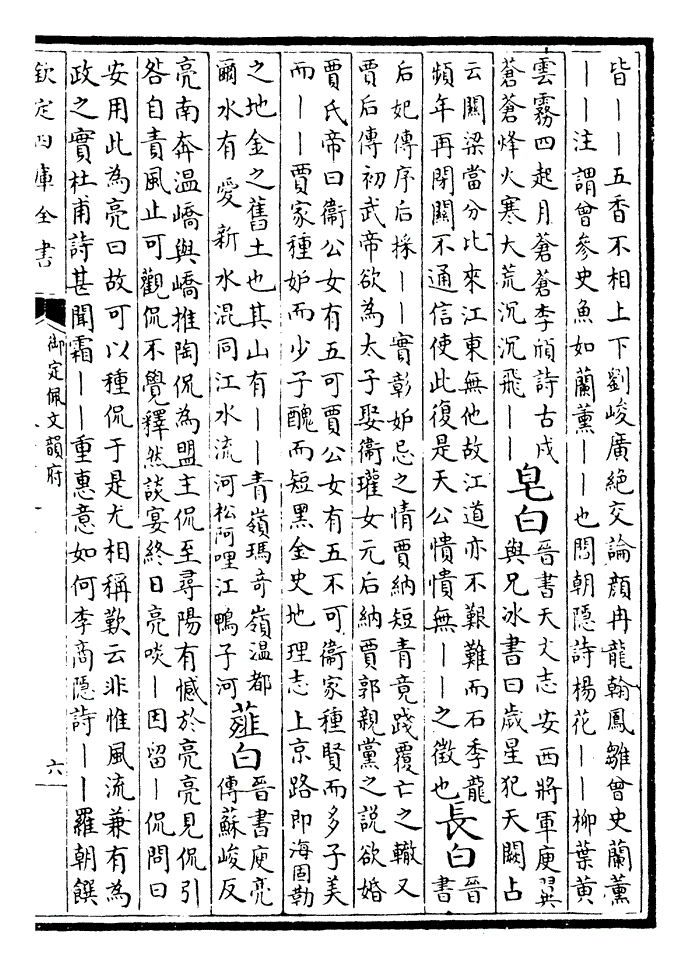 皆——五香不相上下劉峻廣絶交論顔冉龍翰鳳雛曾史蘭薫
——注謂曾參史魚如蘭薫——也閻朝隱詩楊花——柳葉黄
雲霧四起月蒼蒼李頎詩古戍
蒼蒼烽火寒大荒沉沉飛——
皂白
晉書天文志安西將軍庾翼
與兄冰書曰歲星犯天闕占
云關梁當分比來江東無他故江道亦不艱難而石季龍
頻年再閉關不通信使此復是天公憒憒無——之徵也
長白
晉
書
后妃傳序后採——實彰妒忌之情賈納短青竟踐覆亡之轍又
賈后傳初武帝欲為太子娶衞瓘女元后納賈郭親黨之説欲婚
賈氏帝曰衞公女有五可賈公女有五不可衞家種賢而多子美
而——賈家種妒而少子醜而短黒金史地理志上京路即海固勒
之地金之舊土也其山有——青嶺瑪竒嶺温都
爾水有愛新水混同江水流河松阿哩江鴨子河
薤白
晉書庾亮
傳蘇峻反
亮南奔温嶠與嶠推陶侃為盟主侃至尋陽有憾於亮亮見侃引
咎自責風止可觀侃不覺釋然談宴終日亮啖—因留—侃問曰
安用此為亮曰故可以種侃于是尤相稱歎云非惟風流兼有為
政之實杜甫詩甚聞霜——重惠意如何李商隱詩——羅朝饌
欽定四庫全書
御定佩文韻府
六